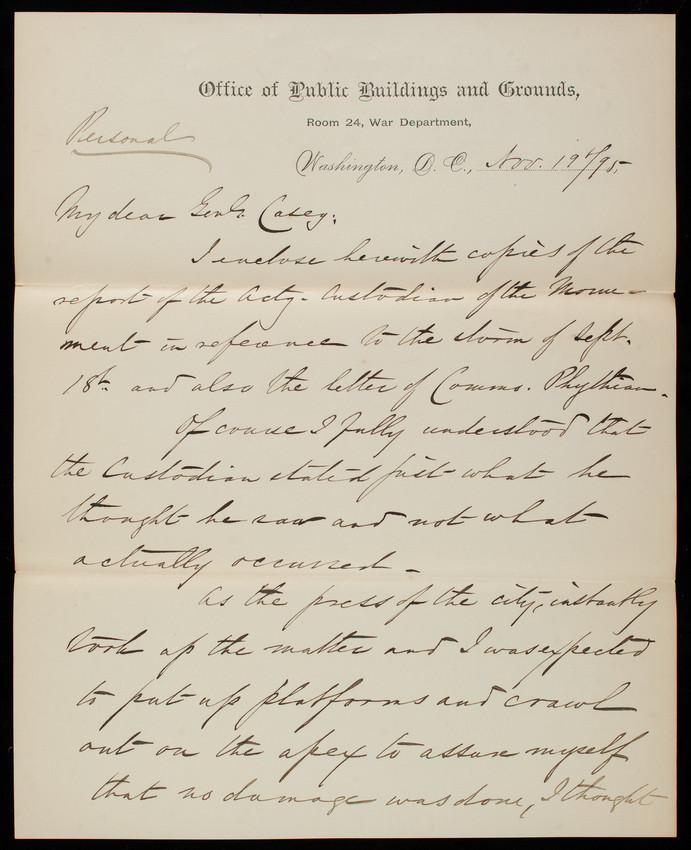 Office of Public Buildings and Grounds,
Room 24, War Department,
Personal
Washington, D. C., Nov. 19th/95.
My dear Genl. Casey:
I enclose herewith copies of the
report of the Actg. Custodian of the Monu-
ment in reference to the storm of Sept.
18th. and also the letter of Commo. Phythian.
Of course I fully understood that
the Custodian stated just what he
thought he saw and not what
actually occurred -
As the press of the city, instantly
took up the matter and I was expected
to put up platforms and crawl
out on the apex to assure myself
that no damage was done, I thought